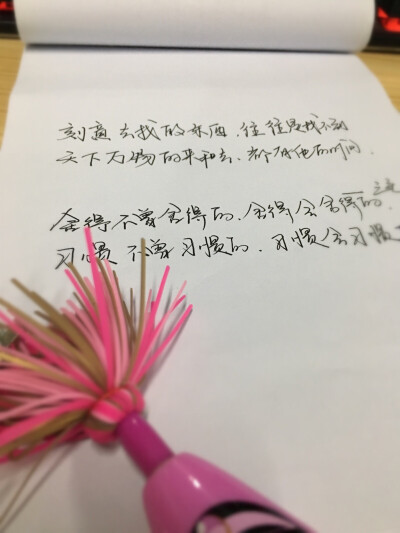 刻意去找的东西、往往是找不到
天下万物的来和去、都有他的时间.
舍得不曾舍得的、舍得会舍得的.
习惯不曾习惯的、习惯会习惯